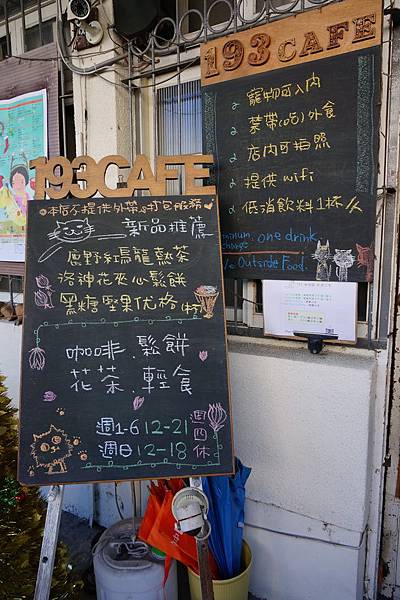 193 CAFE
寵物可入內
禁帶(吃)外食
店內可拍照
提供 wifi
低消飲料1杯/人
minimum charge. one drink
No Outside Food.
193CAFE
本店不提供外帶&打包服務
新品推薦
鹿野紅烏龍熱茶
洛神花夾心鬆餅
黑糖堅果优格(杯)
咖啡.鬆餅
花茶.輕食
週1-6 12-21
週日 12-18
週四休